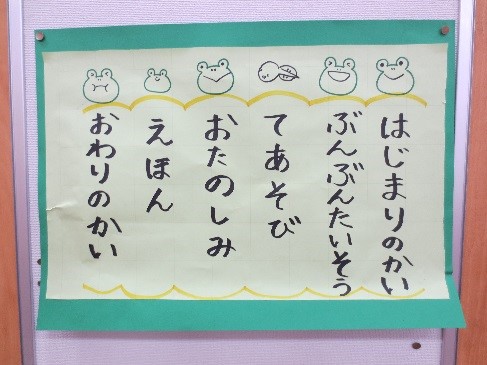 はじまりのかい
ぶんぶんたいそう
てあそび
おたのしみ
えほん
おわりのかい